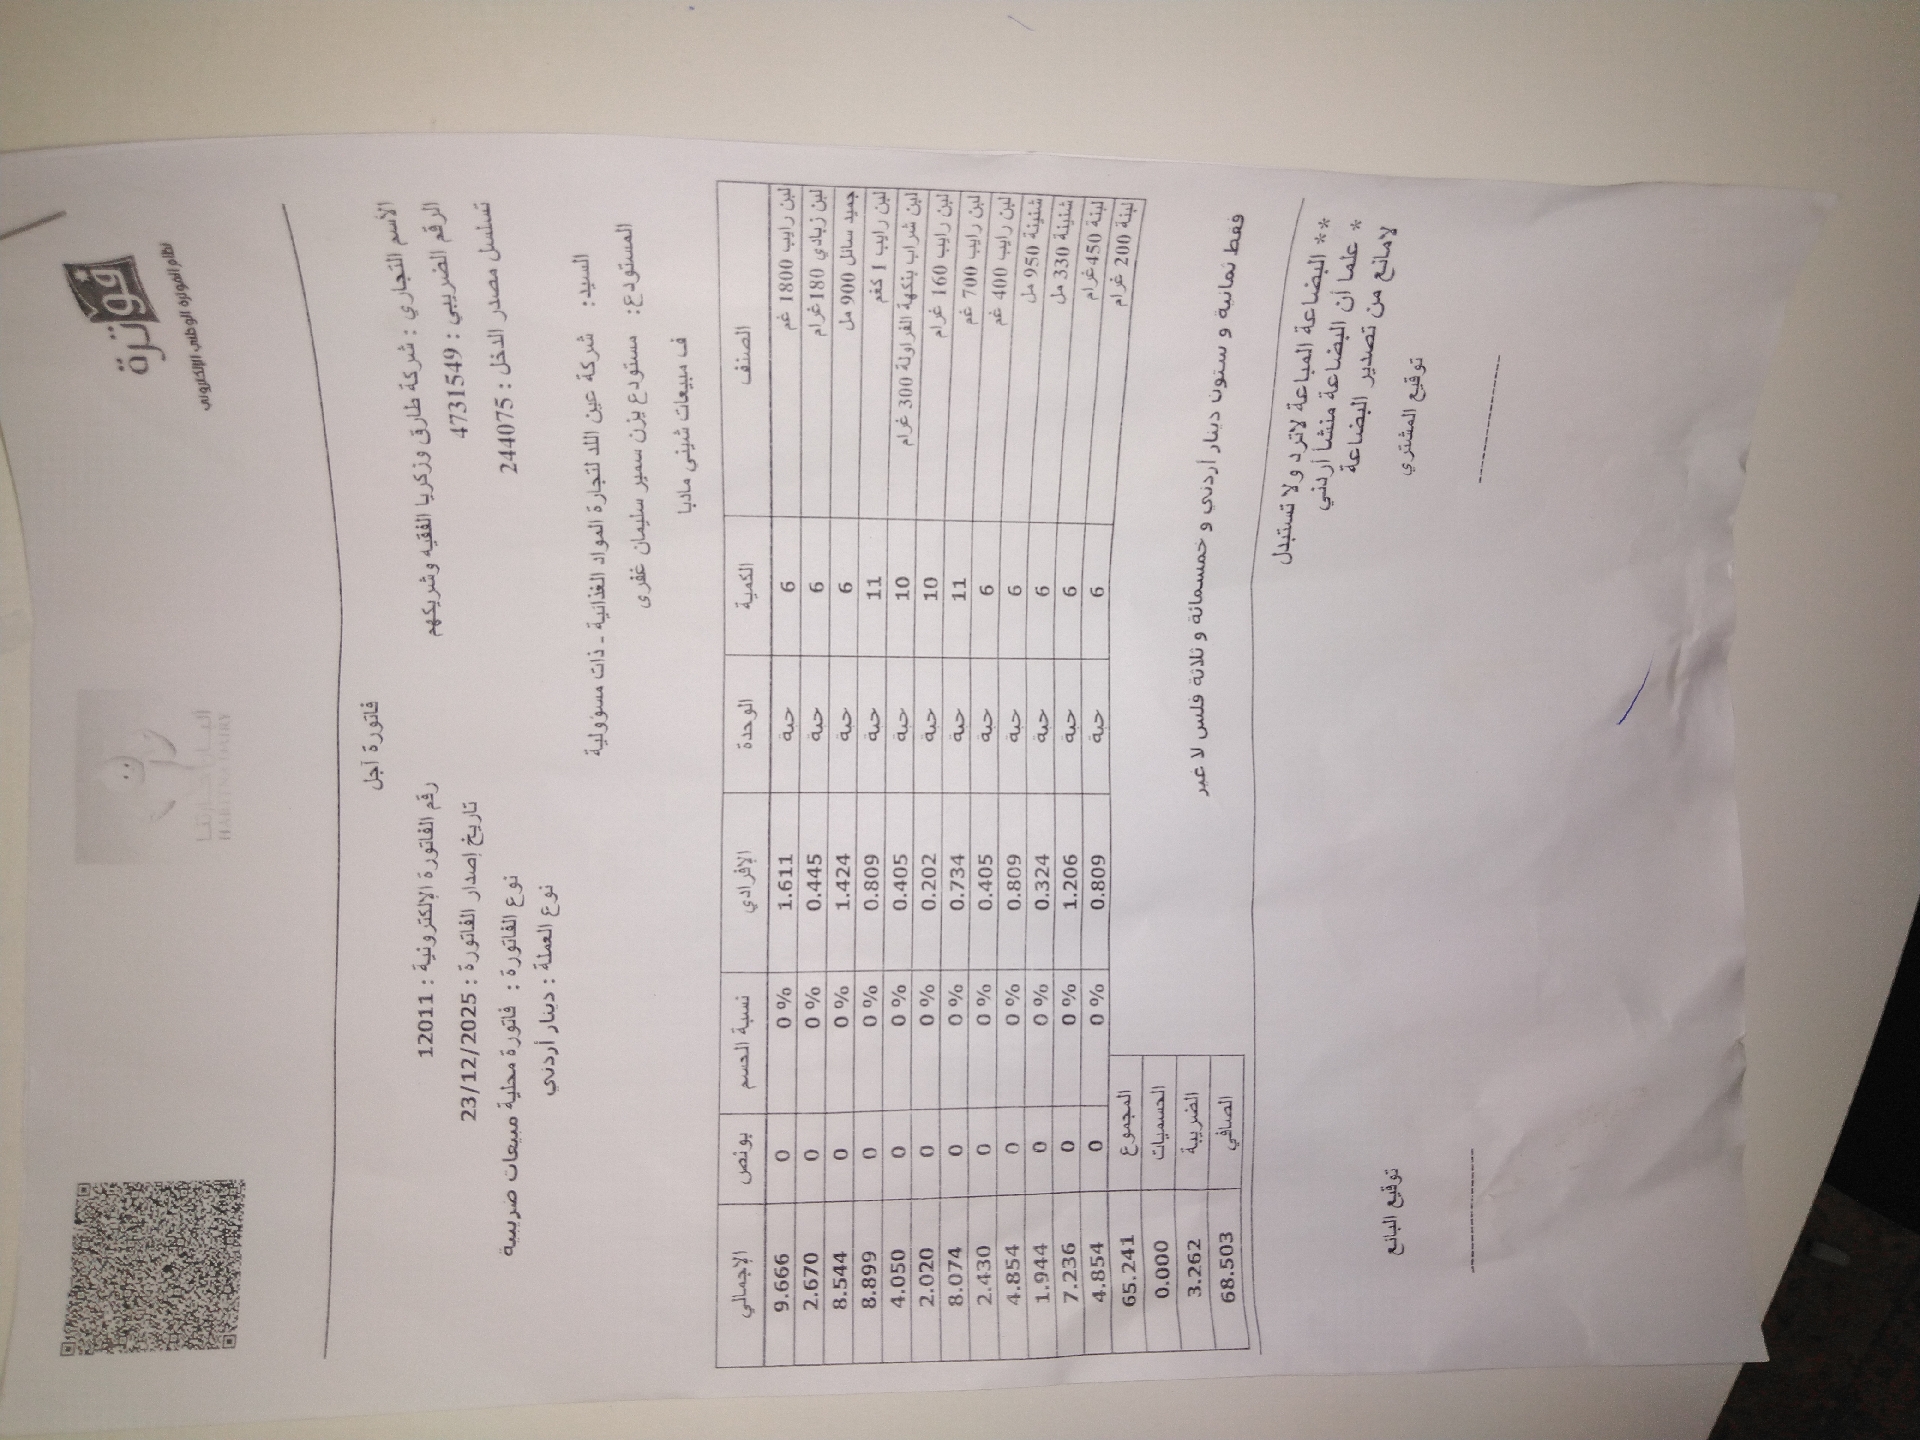 فوترة
نظام الفوترة الوطني الإلكتروني
فاتورة آجل
الأسم التجاري : شركة طارق وزكريا الفقيه وشريكهم
رقم الفاتورة الإلكترونية : 12011
الرقم الضريبي : 4731549
تاريخ إصدار الفاتورة : 23/12/2025
تسلسل مصدر الدخل : 244075
نوع الفاتورة : فاتورة محلية مبيعات ضريبية
نوع العملة : دينار أردني
السيد: شركة عين اللد لتجارة المواد الغذائية - ذات مسؤولية
المستودع: مستودع يزن سمير سليمان غفرى
ف مبيعات شيني مادبا
الصنف الكمية الوحدة الإفرادي نسبة الحسم بونص الإجمالي
لبن رايب 1800 غم 6 حبة 1.611 0 % 0 9.666
لبن زبادي 180غرام 6 حبة 0.445 0 % 0 2.670
جميد سائل 900 مل 6 حبة 1.424 0 % 0 8.544
لبن رايب 1 كغم 11 حبة 0.809 0 % 0 8.899
لبن شراب بنكهة الفراولة 300 غرام 10 حبة 0.405 0 % 0 4.050
لبن رايب 160 غرام 10 حبة 0.202 0 % 0 2.020
لبن رايب 700 غم 11 حبة 0.734 0 % 0 8.074
لبن رايب 400 غم 6 حبة 0.405 0 % 0 2.430
شنينة 950 مل 6 حبة 0.809 0 % 0 4.854
شنينة 330 مل 6 حبة 0.324 0 % 0 1.944
لبنة 450غرام 6 حبة 1.206 0 % 0 7.236
لبنة 200 غرام 6 حبة 0.809 0 % 0 4.854
المجموع 65.241
الحسميات 0.000
الضريبة 3.262
الصافي 68.503
فقط ثمانية و ستون دينار أردني و خمسمائة و ثلاثة فلس لا غير
** البضاعة المباعة لاترد ولا تستبدل
* علما أن البضاعة منشأ أردني
لامانع من تصدير البضاعة
توقيع المشتري
توقيع البائع